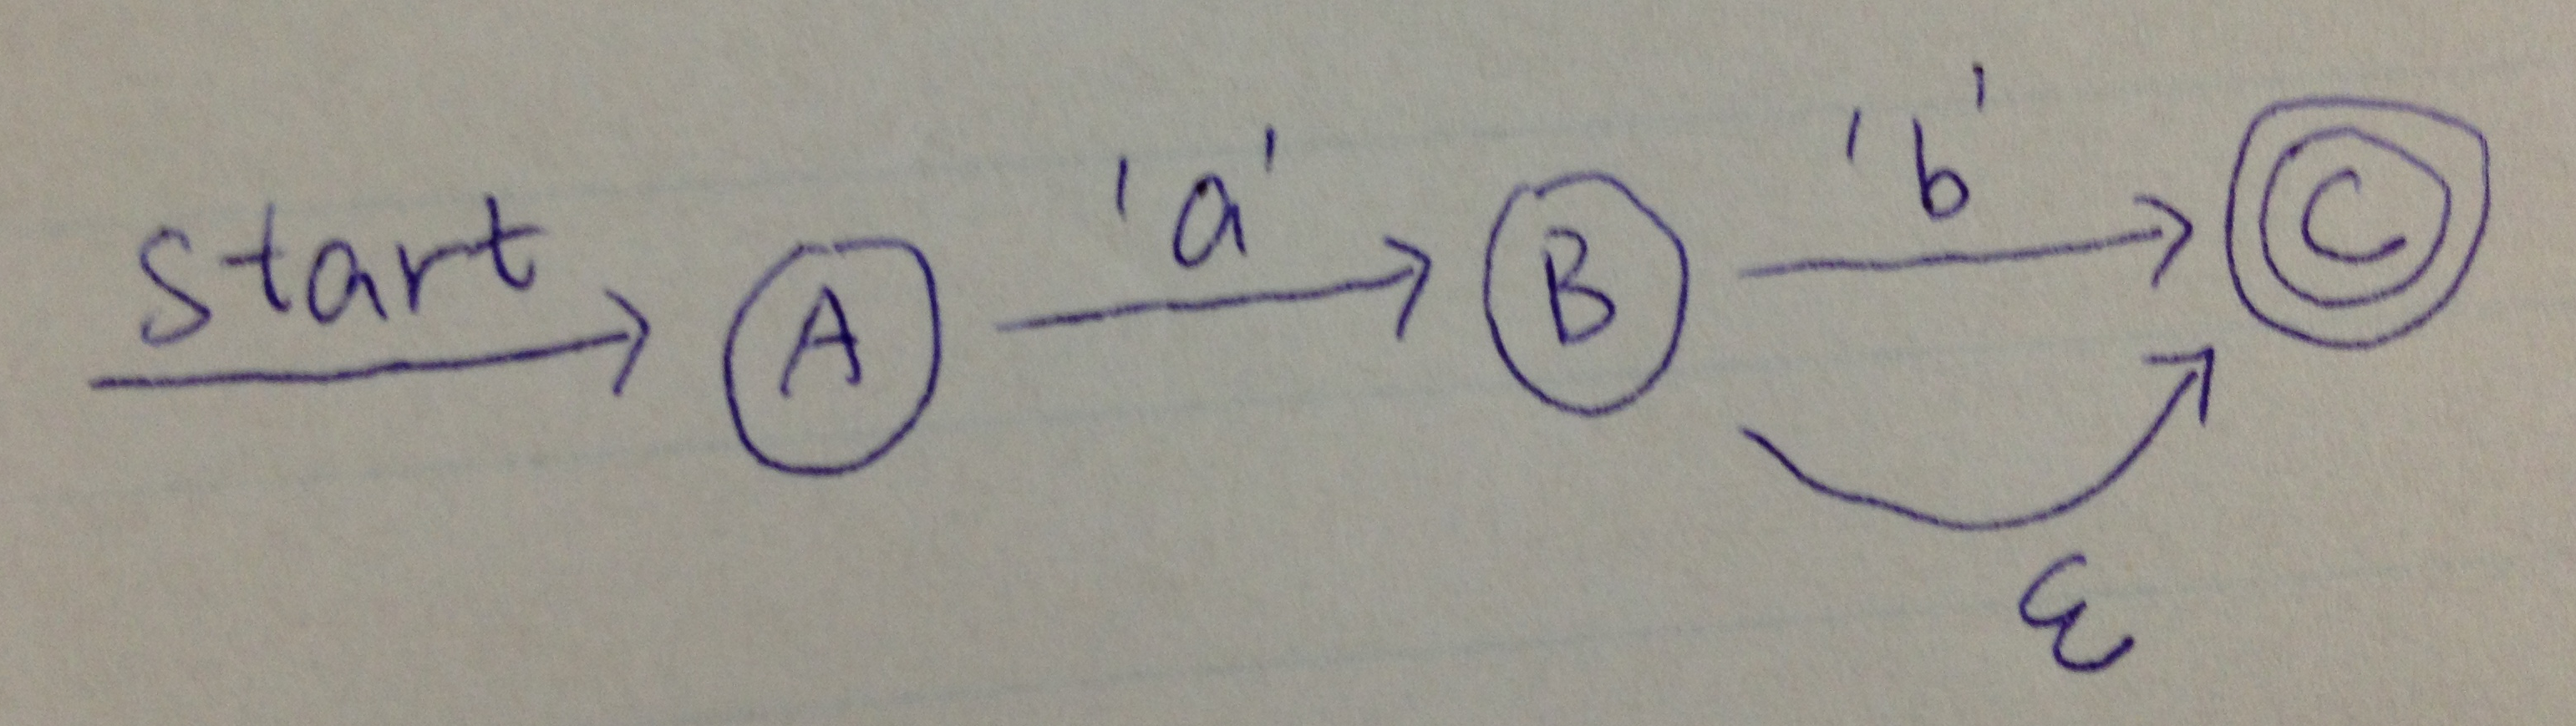 start A 'a' B 'b' C
ε